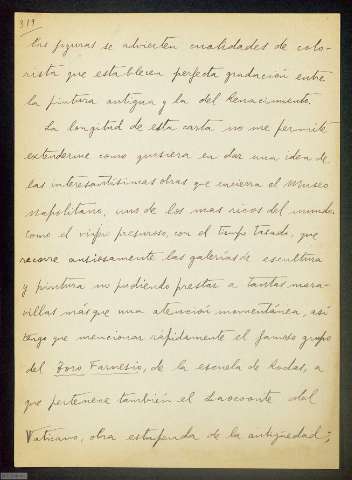 319
las figuras se advierten cualidades de colo-
rista que establecen perfecta gradación entre
la pintura antigua y la del Renacimiento.
La longitud de esta carta no me permite
extenderme como quisiera en dar una idea de
las interesantísimas obras que encierra el Museo
Napolitano, uno de los mas ricos del mundo.
Como el viajero presuroso, con el tiempo tasado, que
recorre ansiosamente las galerías de escultura
y pintura no pudiendo prestar a tantas mara-
villas más que una atención momentánea, así
tengo que mencionar rápidamente el famoso grupo
del Toro Farnesio, de la escuela de Rodas, a
que pertenece también el Laocoonte del
Vaticano, obra estupenda de la antigüedad;